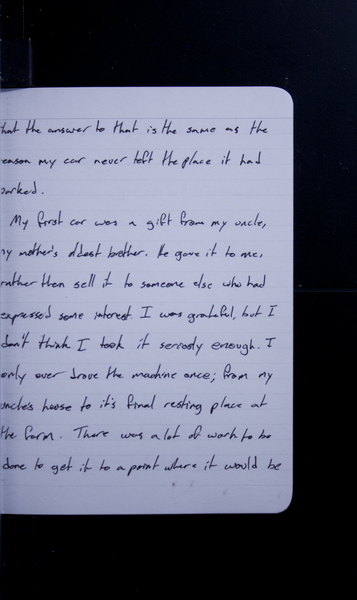 hat the answer to that is the same as the
eason my car never left the place it had
parked.
My first car was a gift from my uncle,
my mother's oldest brother. He gave it to me,
rather then sell it to someone else who had
expressed some interest. I was grateful, but I
don't think I took it seriosly enough. I
only ever drove the machine once; from my
uncle's house to it's final resting place at
the farm. There was a lot of work to be
done to get it to a point where it would be